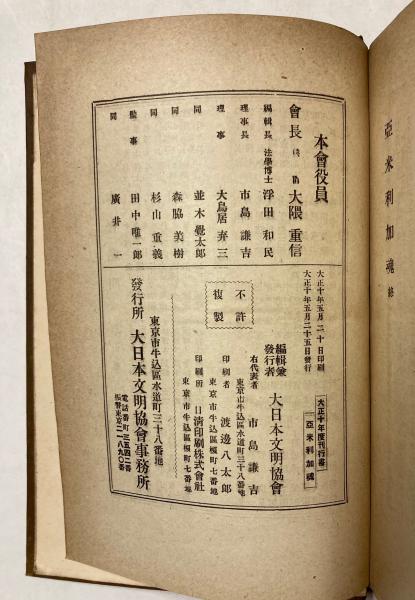 亞米利加魂 終
本會役員
會長 侯爵 大隈重信
編輯長 法學博士 浮田和民
理事長 市島謙吉
理事 大鳥居弃三
同 並木覺太郎
同 森脇美樹
同 杉山重義
監事 田中唯一郎
同 廣井一
大正十年度刊行書
亞米利加魂
大正十年五月二十日印刷
大正十年五月二十五日發行
不許
複製
編輯兼
發行者 大日本文明協會
右代表者 市島謙吉
東京市牛込區水道町三十八番地
印刷者 渡邊八太郎
東京市牛込區榎町七番地
印刷所 日淸印刷株式會社
東京市牛込區榎町七番地
東京市牛込區水道町三十八番地
發行所 大日本文明協會事務所
電話番町三五四二番
振替東京二一八九〇番